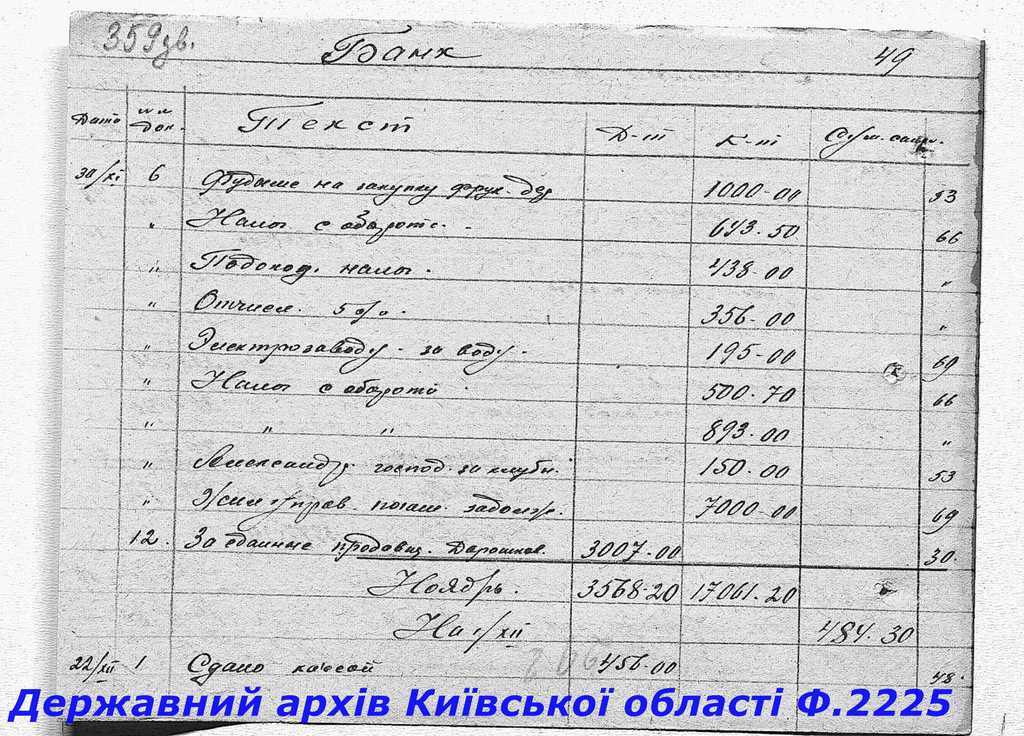 359зв.
Банк 49
Дата №№ Док. Текст Д-т К-т
30/XI 6 на закупку фрук. 1000-00 53
" Налог с оборота 643.50 66
" Подоход. налог. 438-00 "
" Отчисл. 5% 356-00 "
" Электрозаводу за воду 195-00 69
" Налог с оборота 500.70 66
" " " 893-00 "
" Александр. господ. за клубн. 150.00 53
" правл. погаш. задолж. 7000-00 69
12. За сданные продавц. 3007-00 30.
Ноябрь. 3568-20 17061.20
На 1/XII 484.30
22/XII 1 Сдано кассой 456-00 48.
Державний архів Київської області Ф.2225